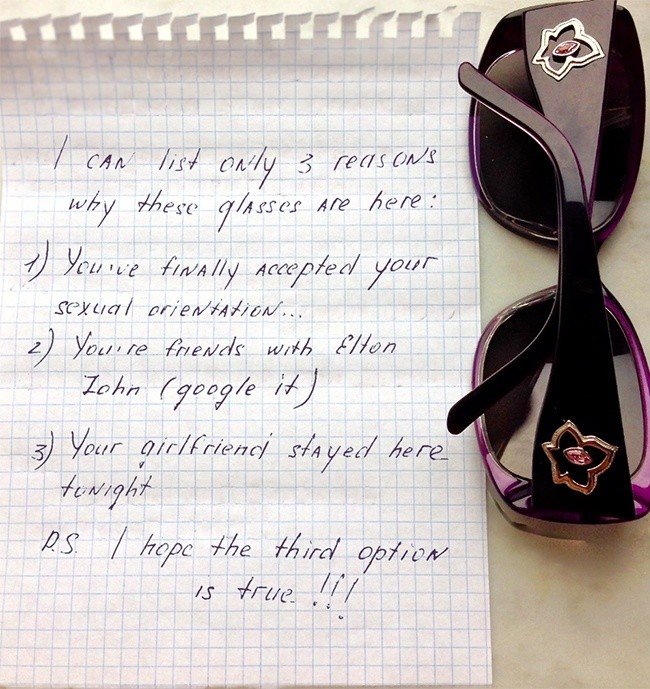 I can list only 3 reasons
why these glasses are here:
1) You've finally accepted your
sexual orientation...
2) You're friends with Elton
John (google it)
3) Your girlfriend stayed here
tonight
P.S. I hope the third option
is true!!!